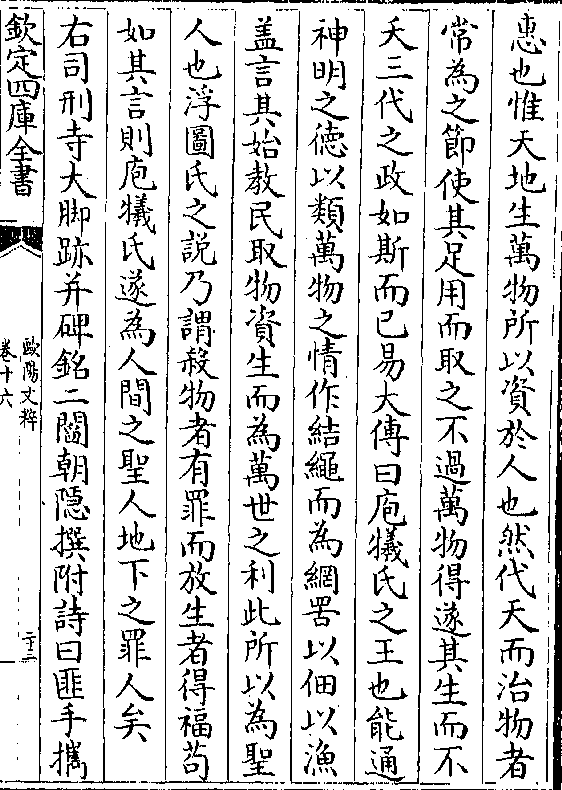 惠也惟天地生萬物所以資於人也然代天而治物者
常為之節使其足用而取之不過萬物得遂其生而不
夭三代之政如斯而已易大傳曰庖犧氏之王也能通
神明之德以類萬物之情作結繩而為網罟以佃以漁
盖言其始教民取物資生而為萬世之利此所以為聖
人也浮圖氏之說乃謂殺物者有罪而放生者得福苟
如其言則庖犧氏遂為人間之聖人地下之罪人矣
右司刑寺大脚跡并碑銘二閻朝隱撰附詩曰匪手攜
欽定四庫全書
歐陽文粹
卷十六
二十二